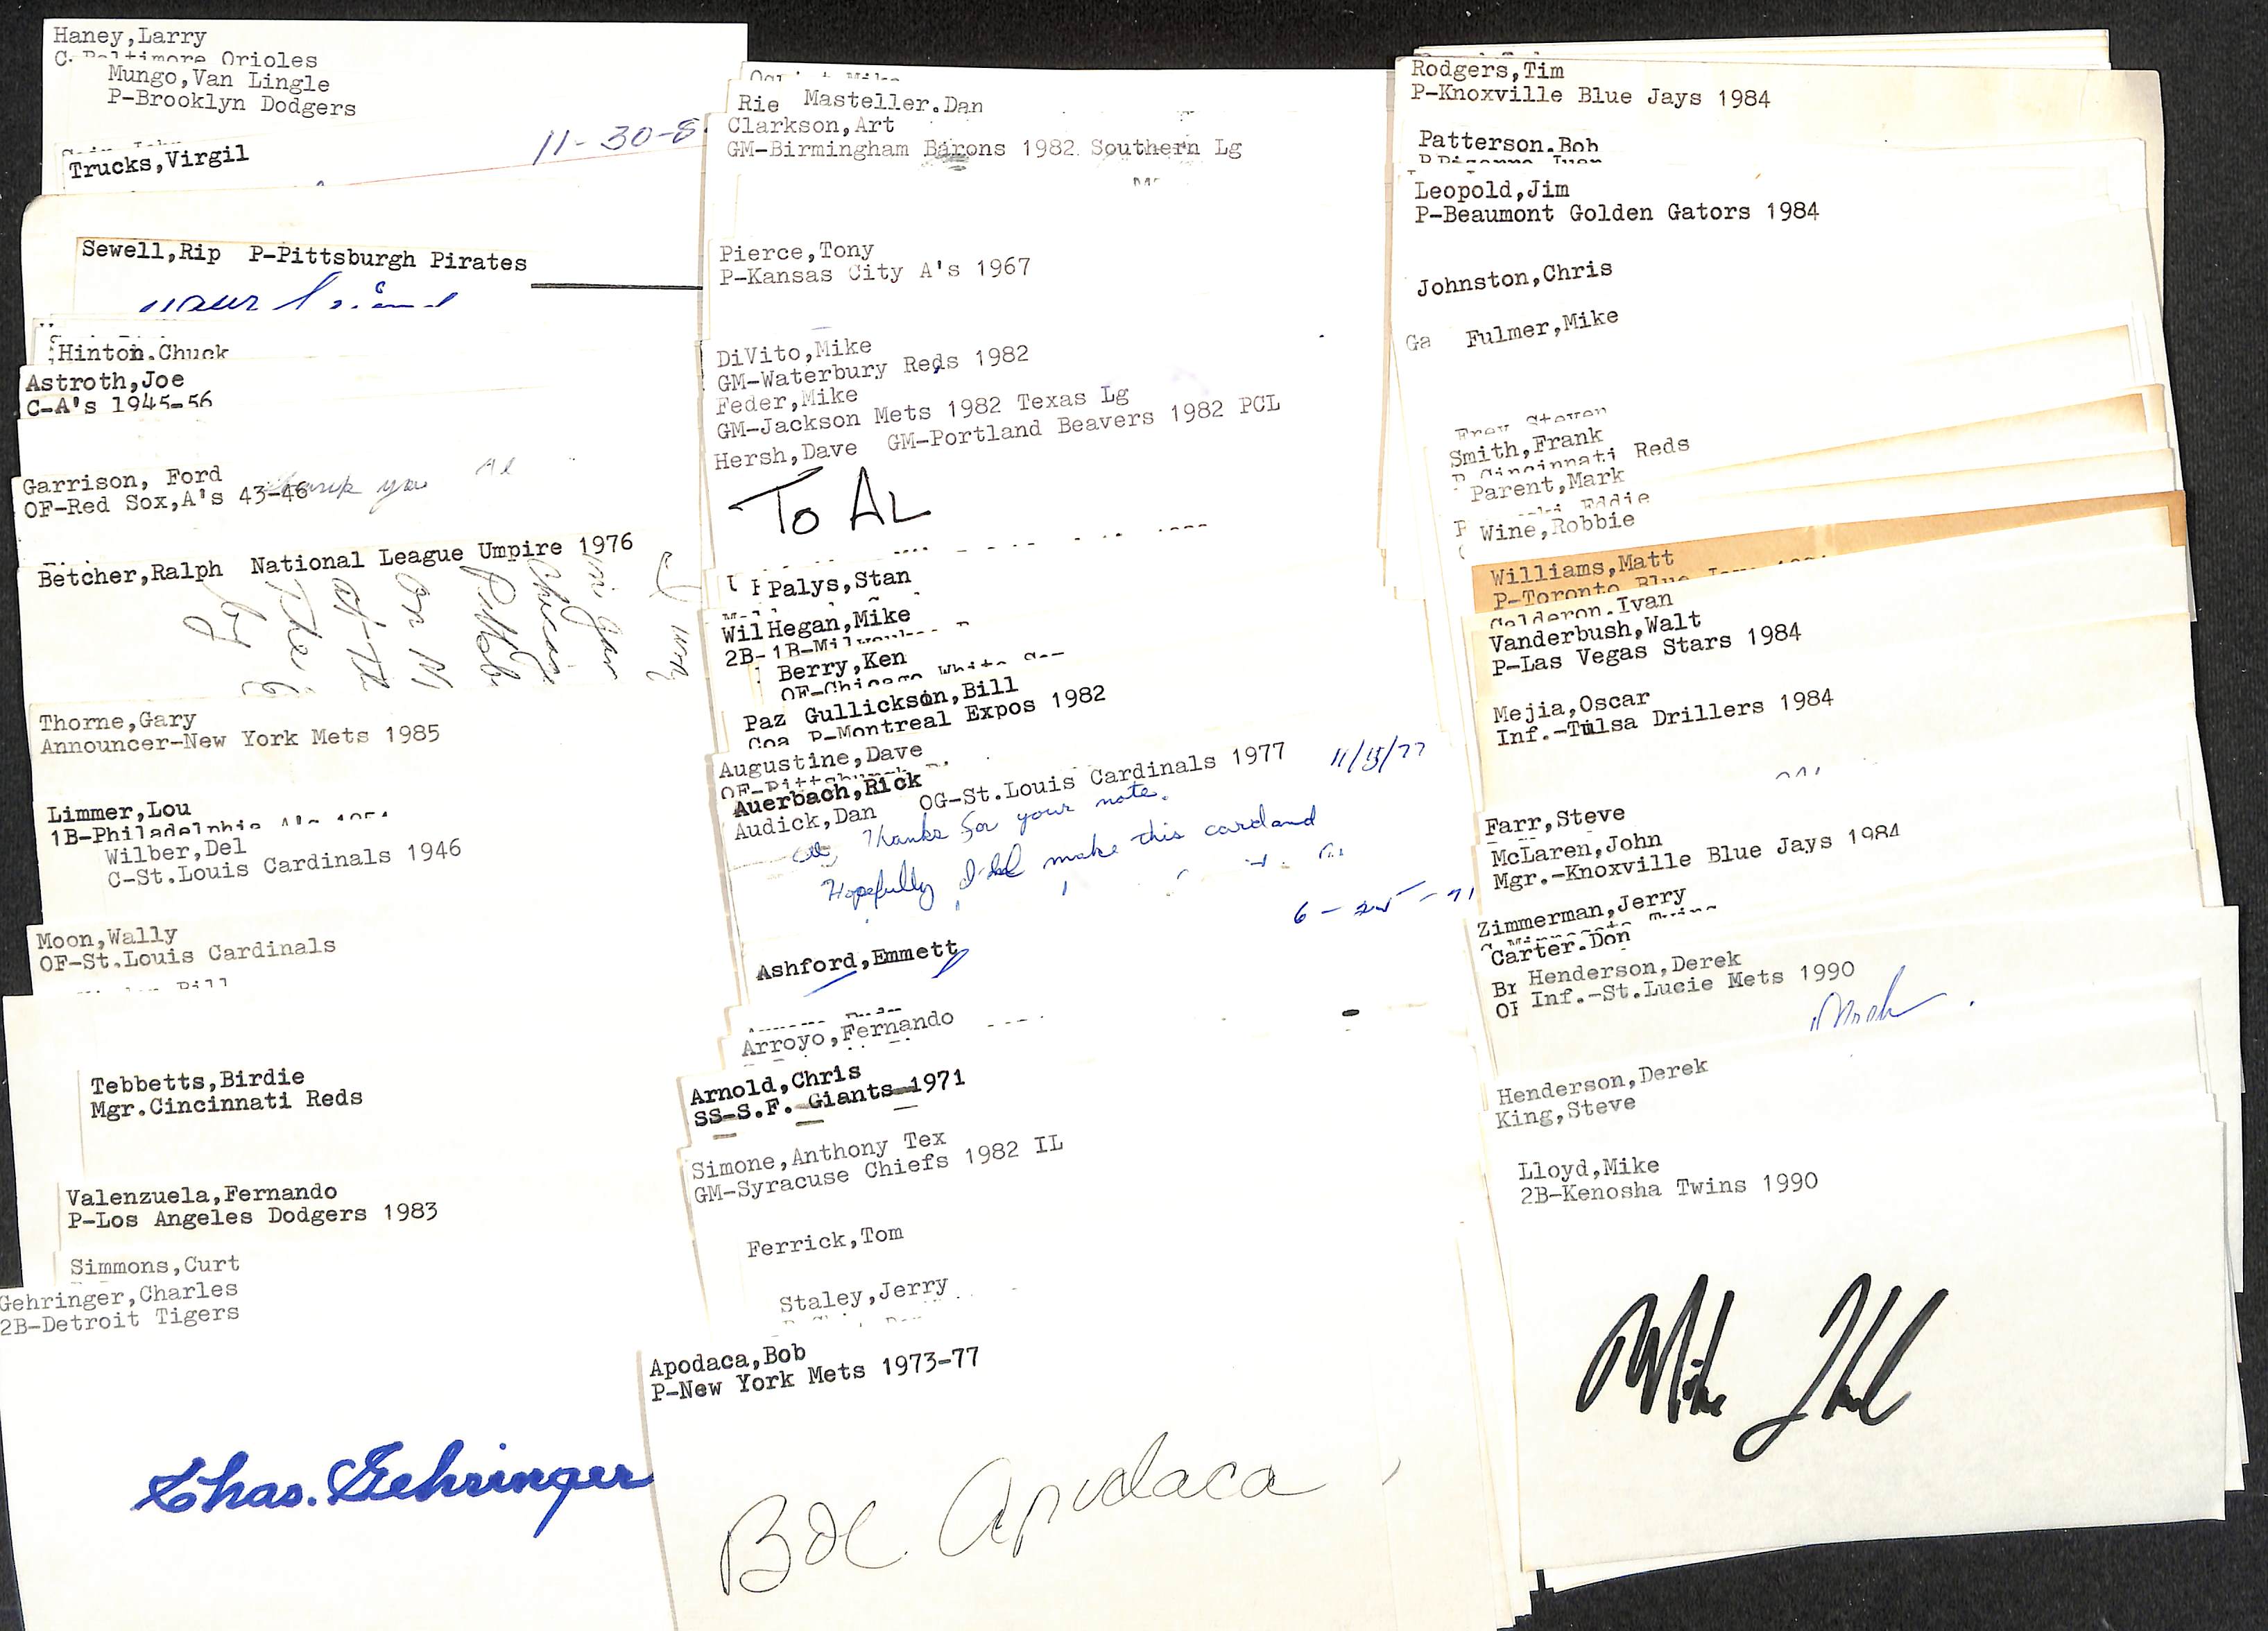 Haney,Larry
C-Baltimore Orioles
Mungo,Van Lingle
P-Brooklyn Dodgers
11-30-8
Trucks,Virgil
Sewell,Rip P-Pittsburgh Pirates
your friend
Hinton,Chuck
Astroth,Joe
C-A's 1945-56
Garrison, Ford
OF-Red Sox,A's 43-46
thank you Al
Betcher,Ralph National League Umpire 1976
Thorne,Gary
Announcer-New York Mets 1985
Limmer,Lou
1B-Philadelphia A's
Wilber,Del
C-St.Louis Cardinals 1946
Moon,Wally
OF-St.Louis Cardinals
Bill
Tebbetts,Birdie
Mgr.Cincinnati Reds
Valenzuela,Fernando
P-Los Angeles Dodgers 1983
Simmons,Curt
Gehringer,Charles
2B-Detroit Tigers
Chas. Gehringer
Mike
Rie Masteller.Dan
Clarkson,Art
GM-Birmingham Barons 1982 Southern Lg
Pierce,Tony
P-Kansas City A's 1967
DiVito,Mike
GM-Waterbury Reds 1982
Feder,Mike
GM-Jackson Mets 1982 Texas Lg
Hersh,Dave GM-Portland Beavers 1982 PCL
To AL
Palys,Stan
Wil Hegan,Mike
2B- 1B-Mil
Berry,Ken
OF-Chicago White
Paz Gullickson,Bill
Coa P-Montreal Expos 1982
Augustine,Dave
OF-Pittsburgh
Auerbach,Rick
Audick,Dan OG-St.Louis Cardinals 1977
11/15/77
Thanks for your note.
Hopefully I'll make this card and
6-25-71
Ashford,Emmett
Arroyo,Fernando
Arnold,Chris
SS-S.F. Giants 1971
Simone,Anthony Tex
GM-Syracuse Chiefs 1982 IL
Ferrick,Tom
Staley,Jerry
Apodaca,Bob
P-New York Mets 1973-77
Bob Apodaca
Rodgers,Tim
P-Knoxville Blue Jays 1984
Patterson.Bob
Leopold,Jim
P-Beaumont Golden Gators 1984
Johnston,Chris
Ga Fulmer,Mike
Frey Steven
Smith,Frank
P Cincinnati Reds
Parent,Mark
Eddie
Wine,Robbie
Williams,Matt
P-Toronto Blue Jays
Calderon.Ivan
Vanderbush,Walt
P-Las Vegas Stars 1984
Mejia,Oscar
Inf.-Tulsa Drillers 1984
Farr,Steve
McLaren,John
Mgr.-Knoxville Blue Jays 1984
Zimmerman,Jerry
C Minnesota Twins
Carter.Don
Br Henderson,Derek
Inf.-St.Lucie Mets 1990
Henderson,Derek
King,Steve
Lloyd,Mike
2B-Kenosha Twins 1990